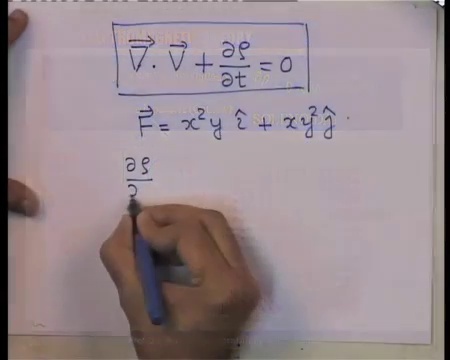 ∇⃗ · V⃗ + ∂ρ/∂t = 0
F⃗ = x²y î + xy² ĵ
∂ρ/∂